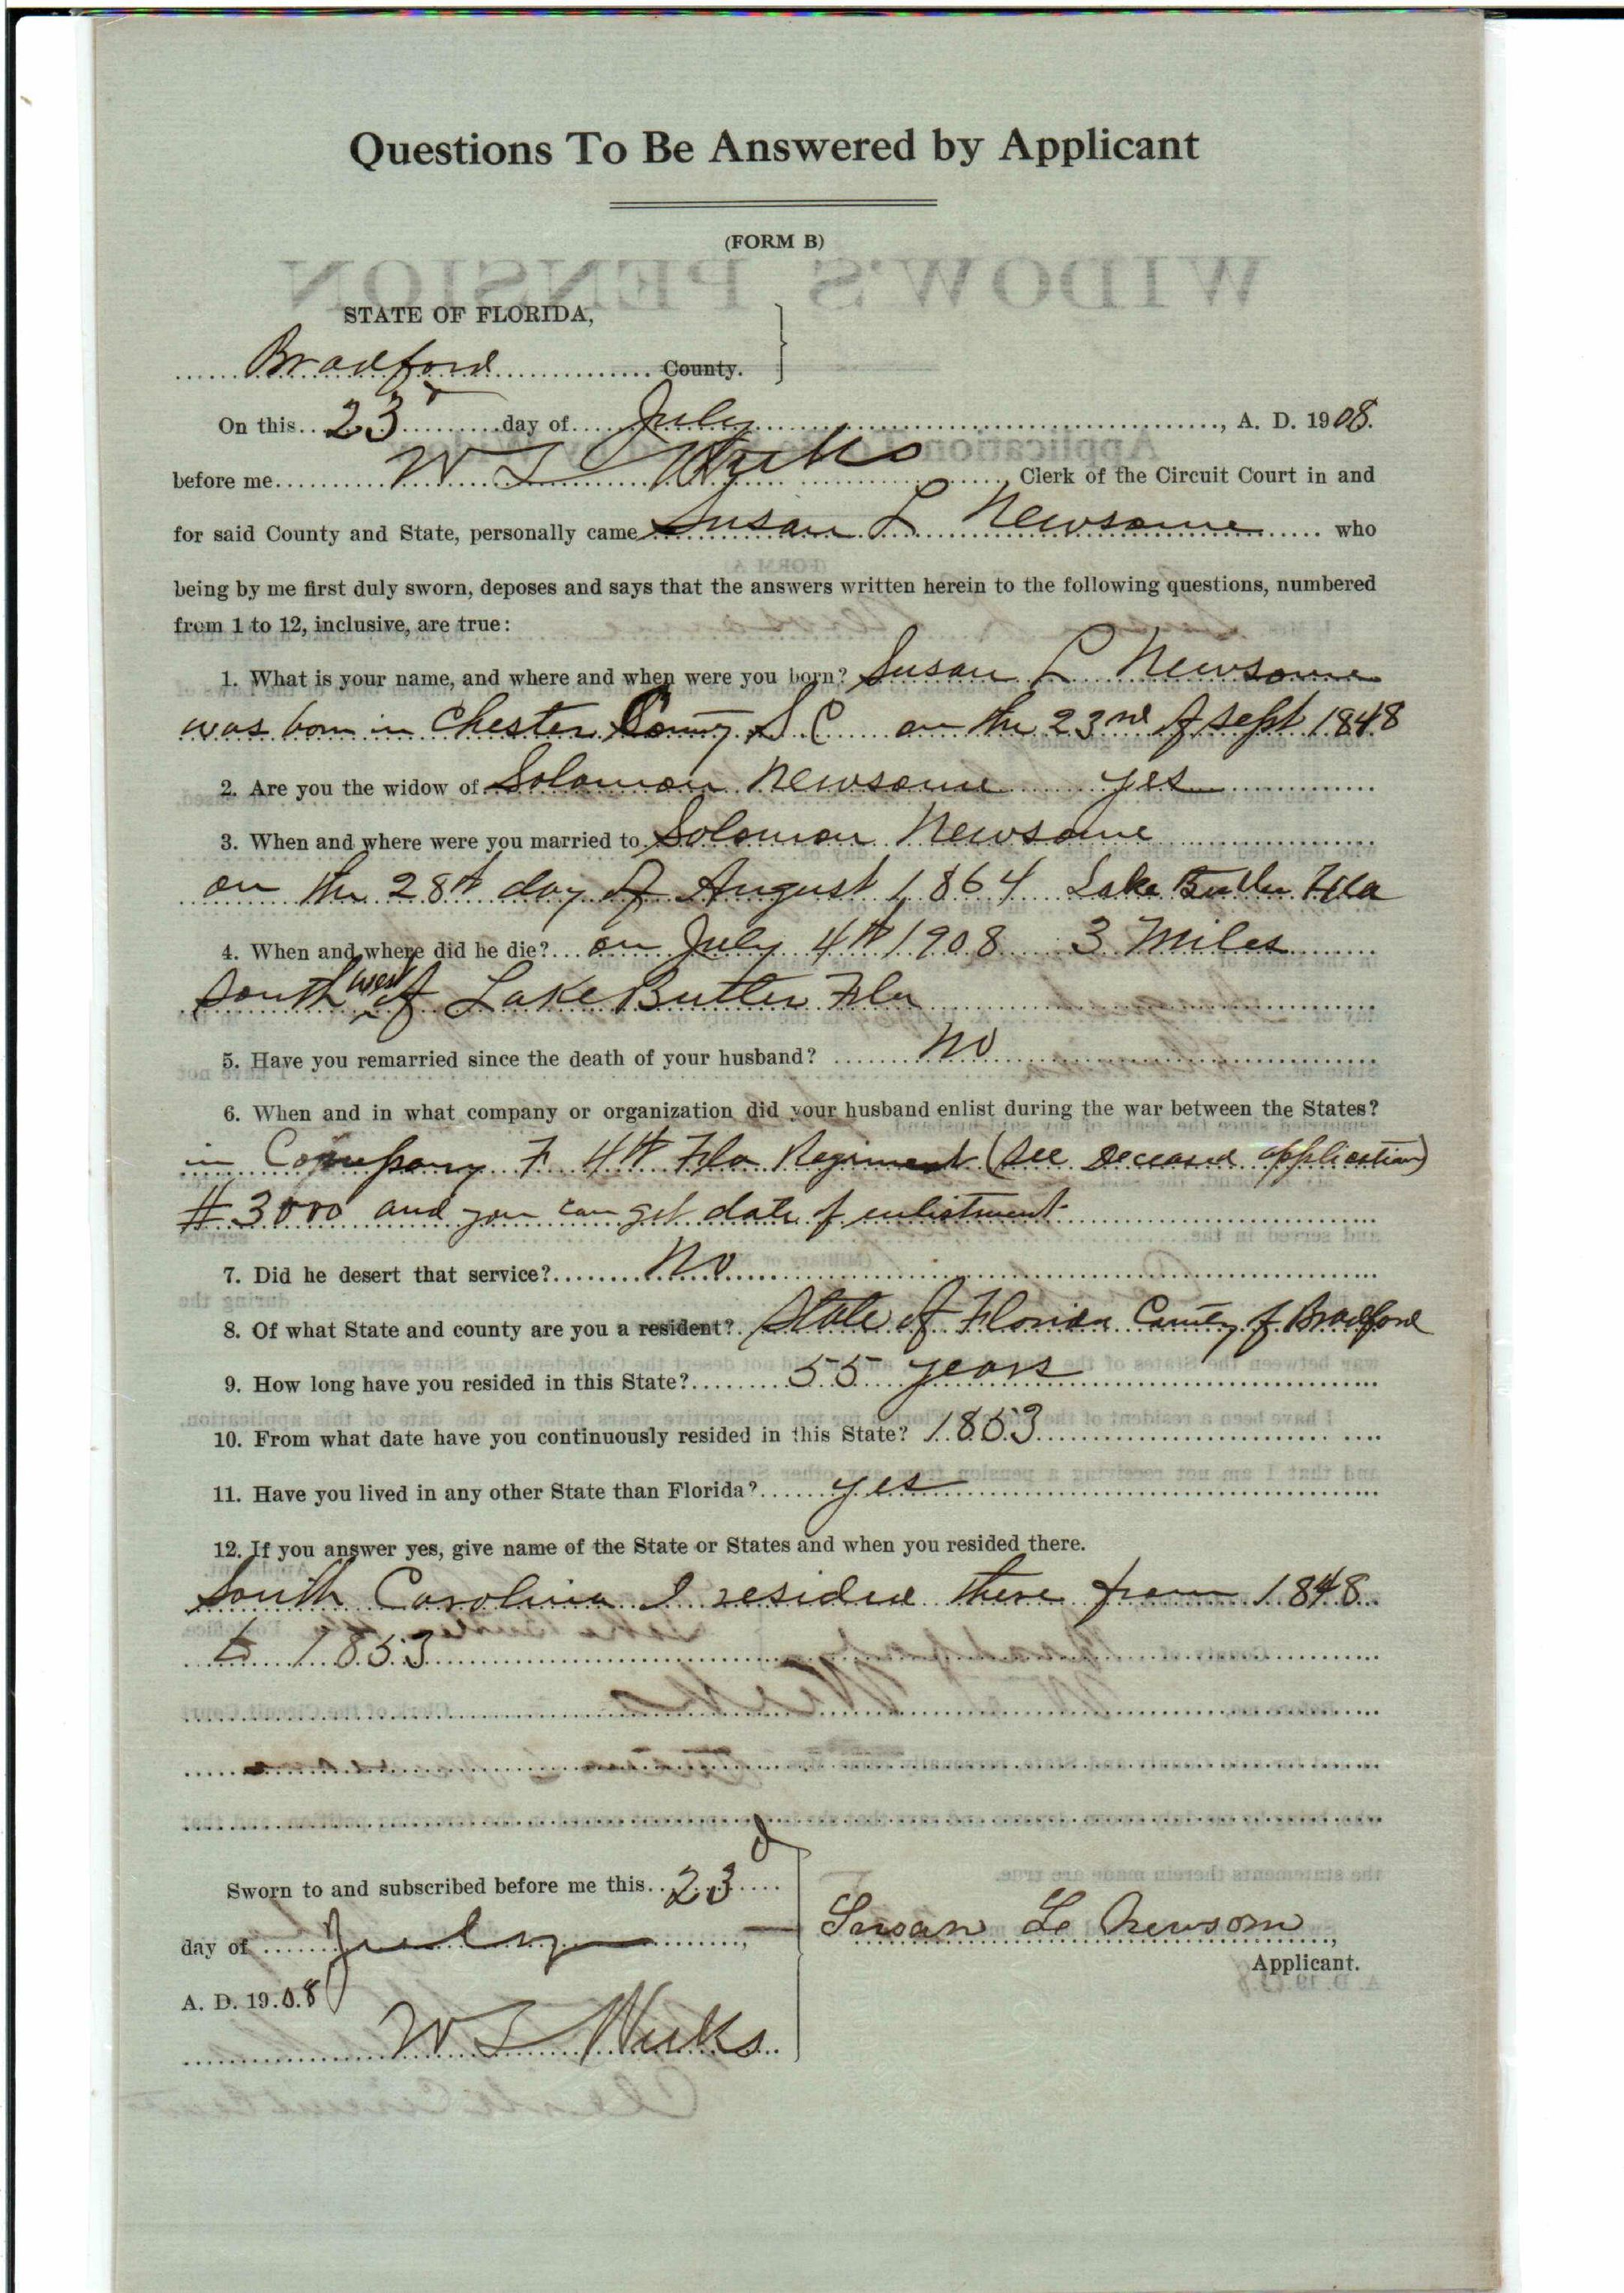 Questions To Be Answered by Applicant
(FORM B)
WIDOW'S PENSION
STATE OF FLORIDA,
Bradford County.
On this 23 day of July, A. D. 1908.
before me W T Weeks Clerk of the Circuit Court in and
for said County and State, personally came Susan L Newsome who
being by me first duly sworn, deposes and says that the answers written herein to the following questions, numbered
from 1 to 12, inclusive, are true:
1. What is your name, and where and when were you born? Susan L Newsome
was born in Chester County S C on the 23nd of Sept 1848
2. Are you the widow of Solomon Newsome yes
3. When and where were you married to Solomon Newsome
on the 28th day of August 1864 Lake Butler Fla
4. When and where did he die? on July 4th 1908 3 Miles
south west of Lake Butler Fla
5. Have you remarried since the death of your husband? No
6. When and in what company or organization did your husband enlist during the war between the States?
in Company F 4th Fla Regiment (see Deceased application)
# 3000 and you can get date of enlistment
7. Did he desert that service? No
8. Of what State and county are you a resident? State of Florida County of Bradford
9. How long have you resided in this State? 55 years
10. From what date have you continuously resided in this State? 1853
11. Have you lived in any other State than Florida? yes
12. If you answer yes, give name of the State or States and when you resided there.
South Carolina I resided there from 1848
to 1853
Sworn to and subscribed before me this 23d
day of July,
A. D. 1908
W T Weeks
Susan L Newsom,
Applicant.